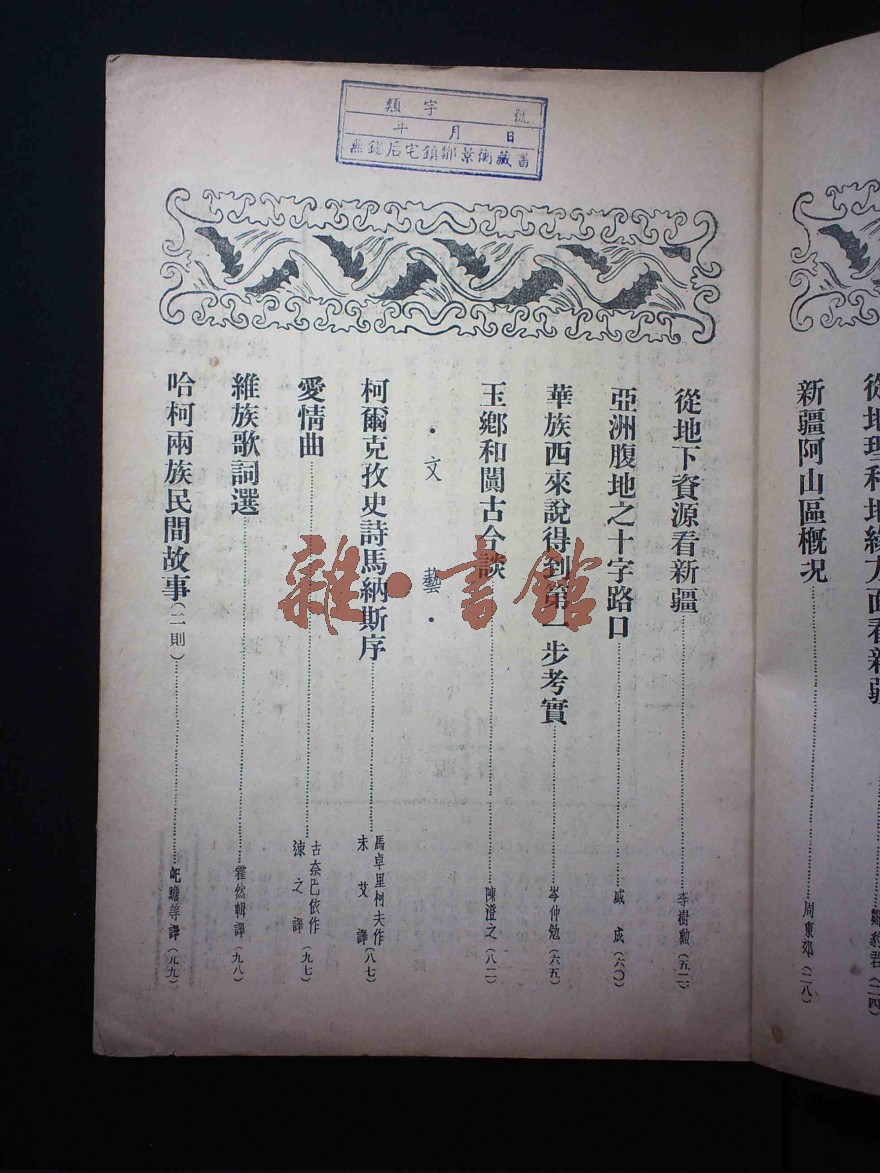 類字 號
年 月 日
無錫后宅鎮鄒景衡藏書
從地理和地緣方面看新疆……鄒豹君(二四)
新疆阿山區概況……周東郊(二八)
從地下資源看新疆……李樹勳(五二)
亞洲腹地之十字路口……戚成(六〇)
華族西來說得到第一步考實……岑仲勉(六五)
玉鄉和闐古今談……陳澄之(八二)
·文藝·
柯爾克孜史詩馬納斯序……馬卓里柯夫作 未艾譯(八七)
愛情曲……古奈巴依作 涑之譯(九七)
維族歌詞選……霍然輯譯(九八)
哈柯兩族民間故事(二則)……等譯(九九)
雜·書館